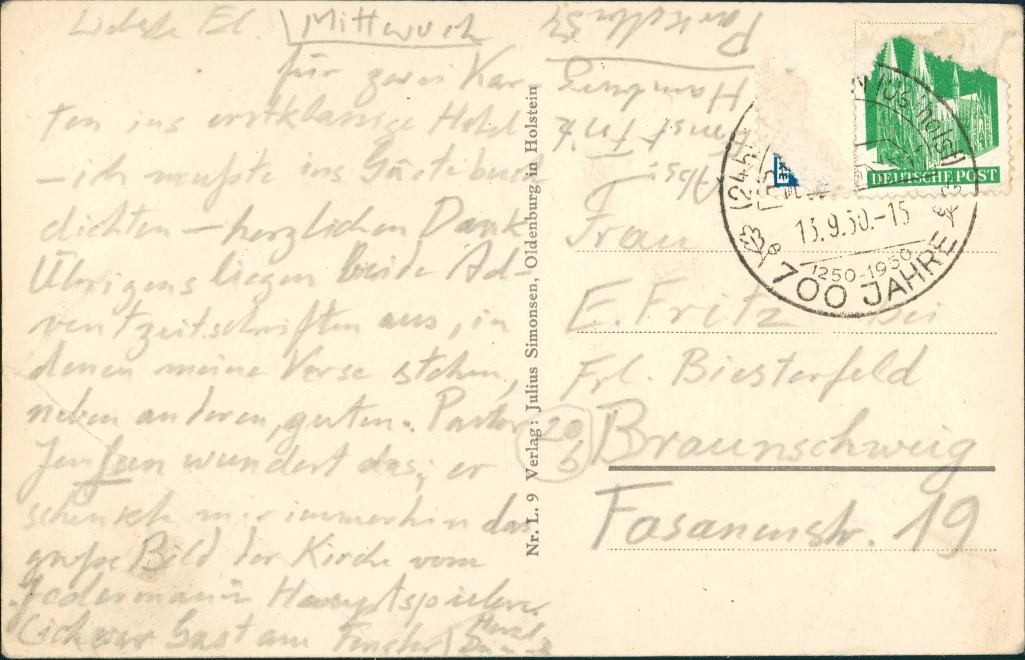 Liebste El. Mittwoch
für zwei Kar-
ten ins erstklassige Hotel
– ich mußte ins Gästebuch
dichten – herzlichen Dank
Übrigens liegen beide Ad-
ventzeitschriften aus, in
denen meine Verse stehen,
neben anderen, guten. Pastor
wundert das; er
schenkte mir immerhin das
große Bild der Kirche vom
Hauptspieler
(ich war Gast am Fenster)
Nr. L. 9 Verlag: Julius Simonsen, Oldenburg in Holstein
Abs.
Ernst Fritz
Hamburg
DEUTSCHE POST
(24b)
13.9.50.-15
1250-1950
700 JAHRE
Frau
E. Fritz bei
Frl. Biesterfeld
20b Braunschweig
Fasanenstr. 19